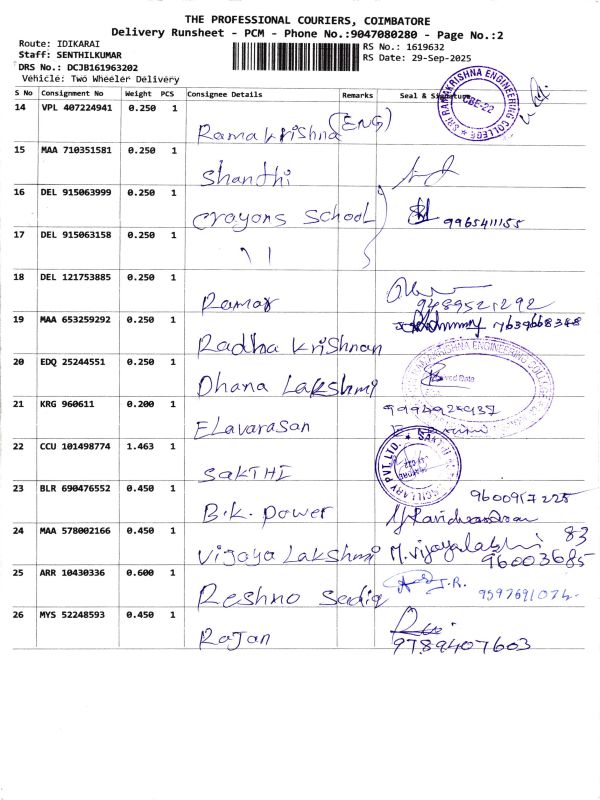 THE PROFESSIONAL COURIERS, COIMBATORE
Delivery Runsheet - PCM - Phone No.:9047080280 - Page No.:2
Route: IDIKARAI
RS No.: 1619632
Staff: SENTHILKUMAR
RS Date: 29-Sep-2025
DRS No.: DCJB161963202
Vehicle: Two Wheeler Delivery
S No Consignment No Weight PCS Consignee Details Remarks Seal &
14 VPL 407224941 0.250 1 Ramakrishna (ENG)
SRI RAMAKRISHNA ENGINEERING COLLEGE
CBE-22
15 MAA 710351581 0.250 1 Shanthi
16 DEL 915063999 0.250 1 Crayons School 9965411155
17 DEL 915063158 0.250 1 \ |
18 DEL 121753885 0.250 1 Ramar
9489521292
19 MAA 653259292 0.250 1 Radha Krishnan 7639668348
20 EDQ 25244551 0.250 1 Dhana Lakshmi
RAMAKRISHNA ENGINEERING COLLEGE
Date
21 KRG 960611 0.200 1 Elavarasan 9994924937
22 CCU 101498774 1.463 1 SAKTHI
PVT. LTD. * SAKTHI
23 BLR 690476552 0.450 1 B.K. Power 9600957225
24 MAA 578002166 0.450 1 Vijaya Lakshmi M.Vijayalakshmi 83
96003685
25 ARR 10430336 0.600 1 Reshno Sadiq J.R.
9597691074
26 MYS 52248593 0.450 1 Rajan
9789407603